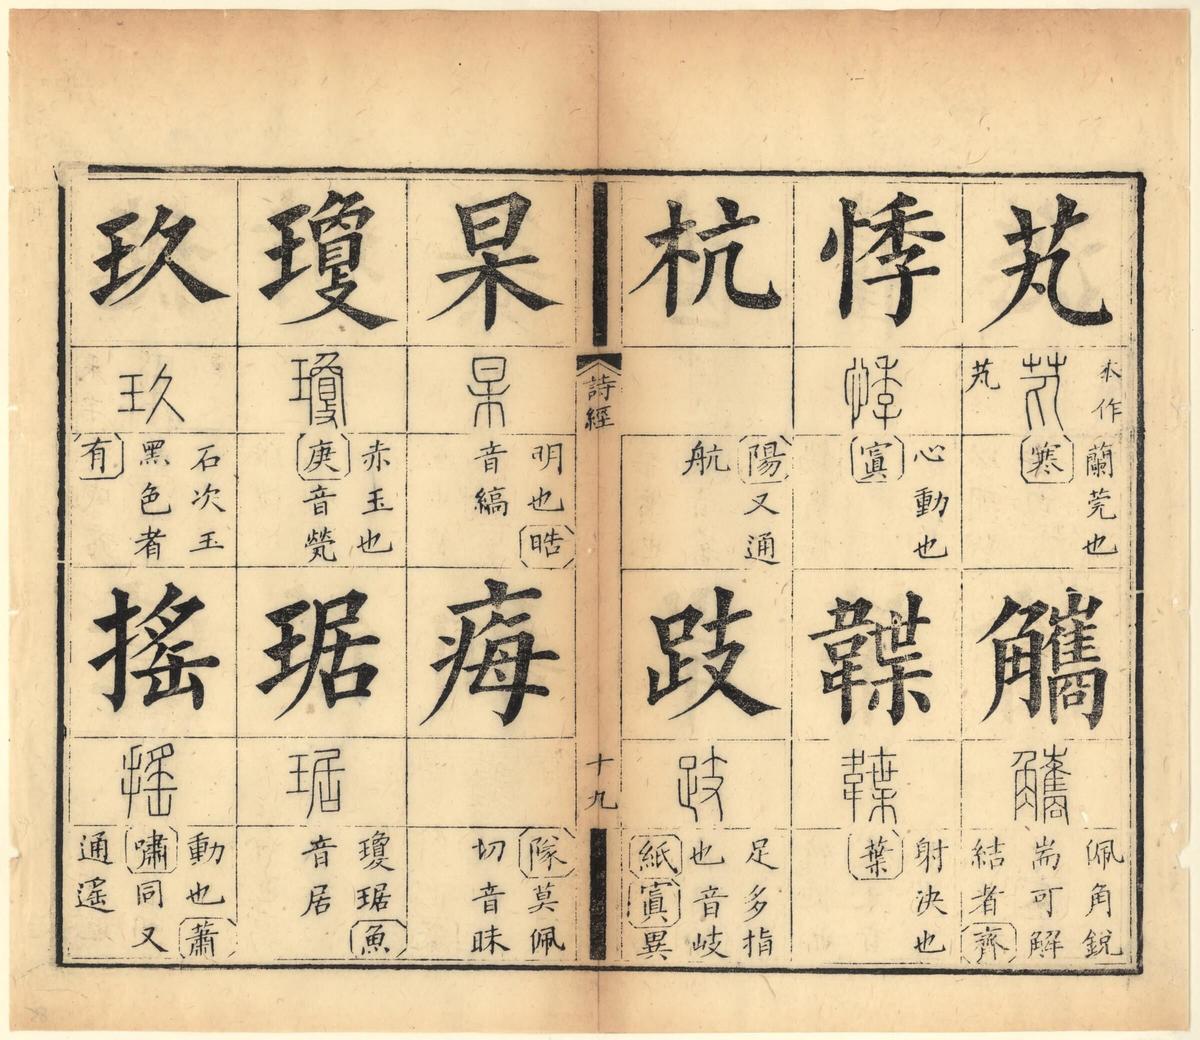 芄
本作
芄
芄
蘭莞也
寒
觿
觿
佩角銳
耑可解
結者齊
悸
悸
心動也
寘
韘
韘
射決也
葉
杭
陽又通
航
跂
跂
足多指
也音岐
紙寘異
詩經
十九
杲
杲
明也晧
音縞
痗
隊莫佩
切音昧
瓊
瓊
赤玉也
庚音煢
琚
琚
瓊琚魚
音居
玖
玖
石次玉
黑色者
有
搖
搖
動也蕭
嘯同又
通遙